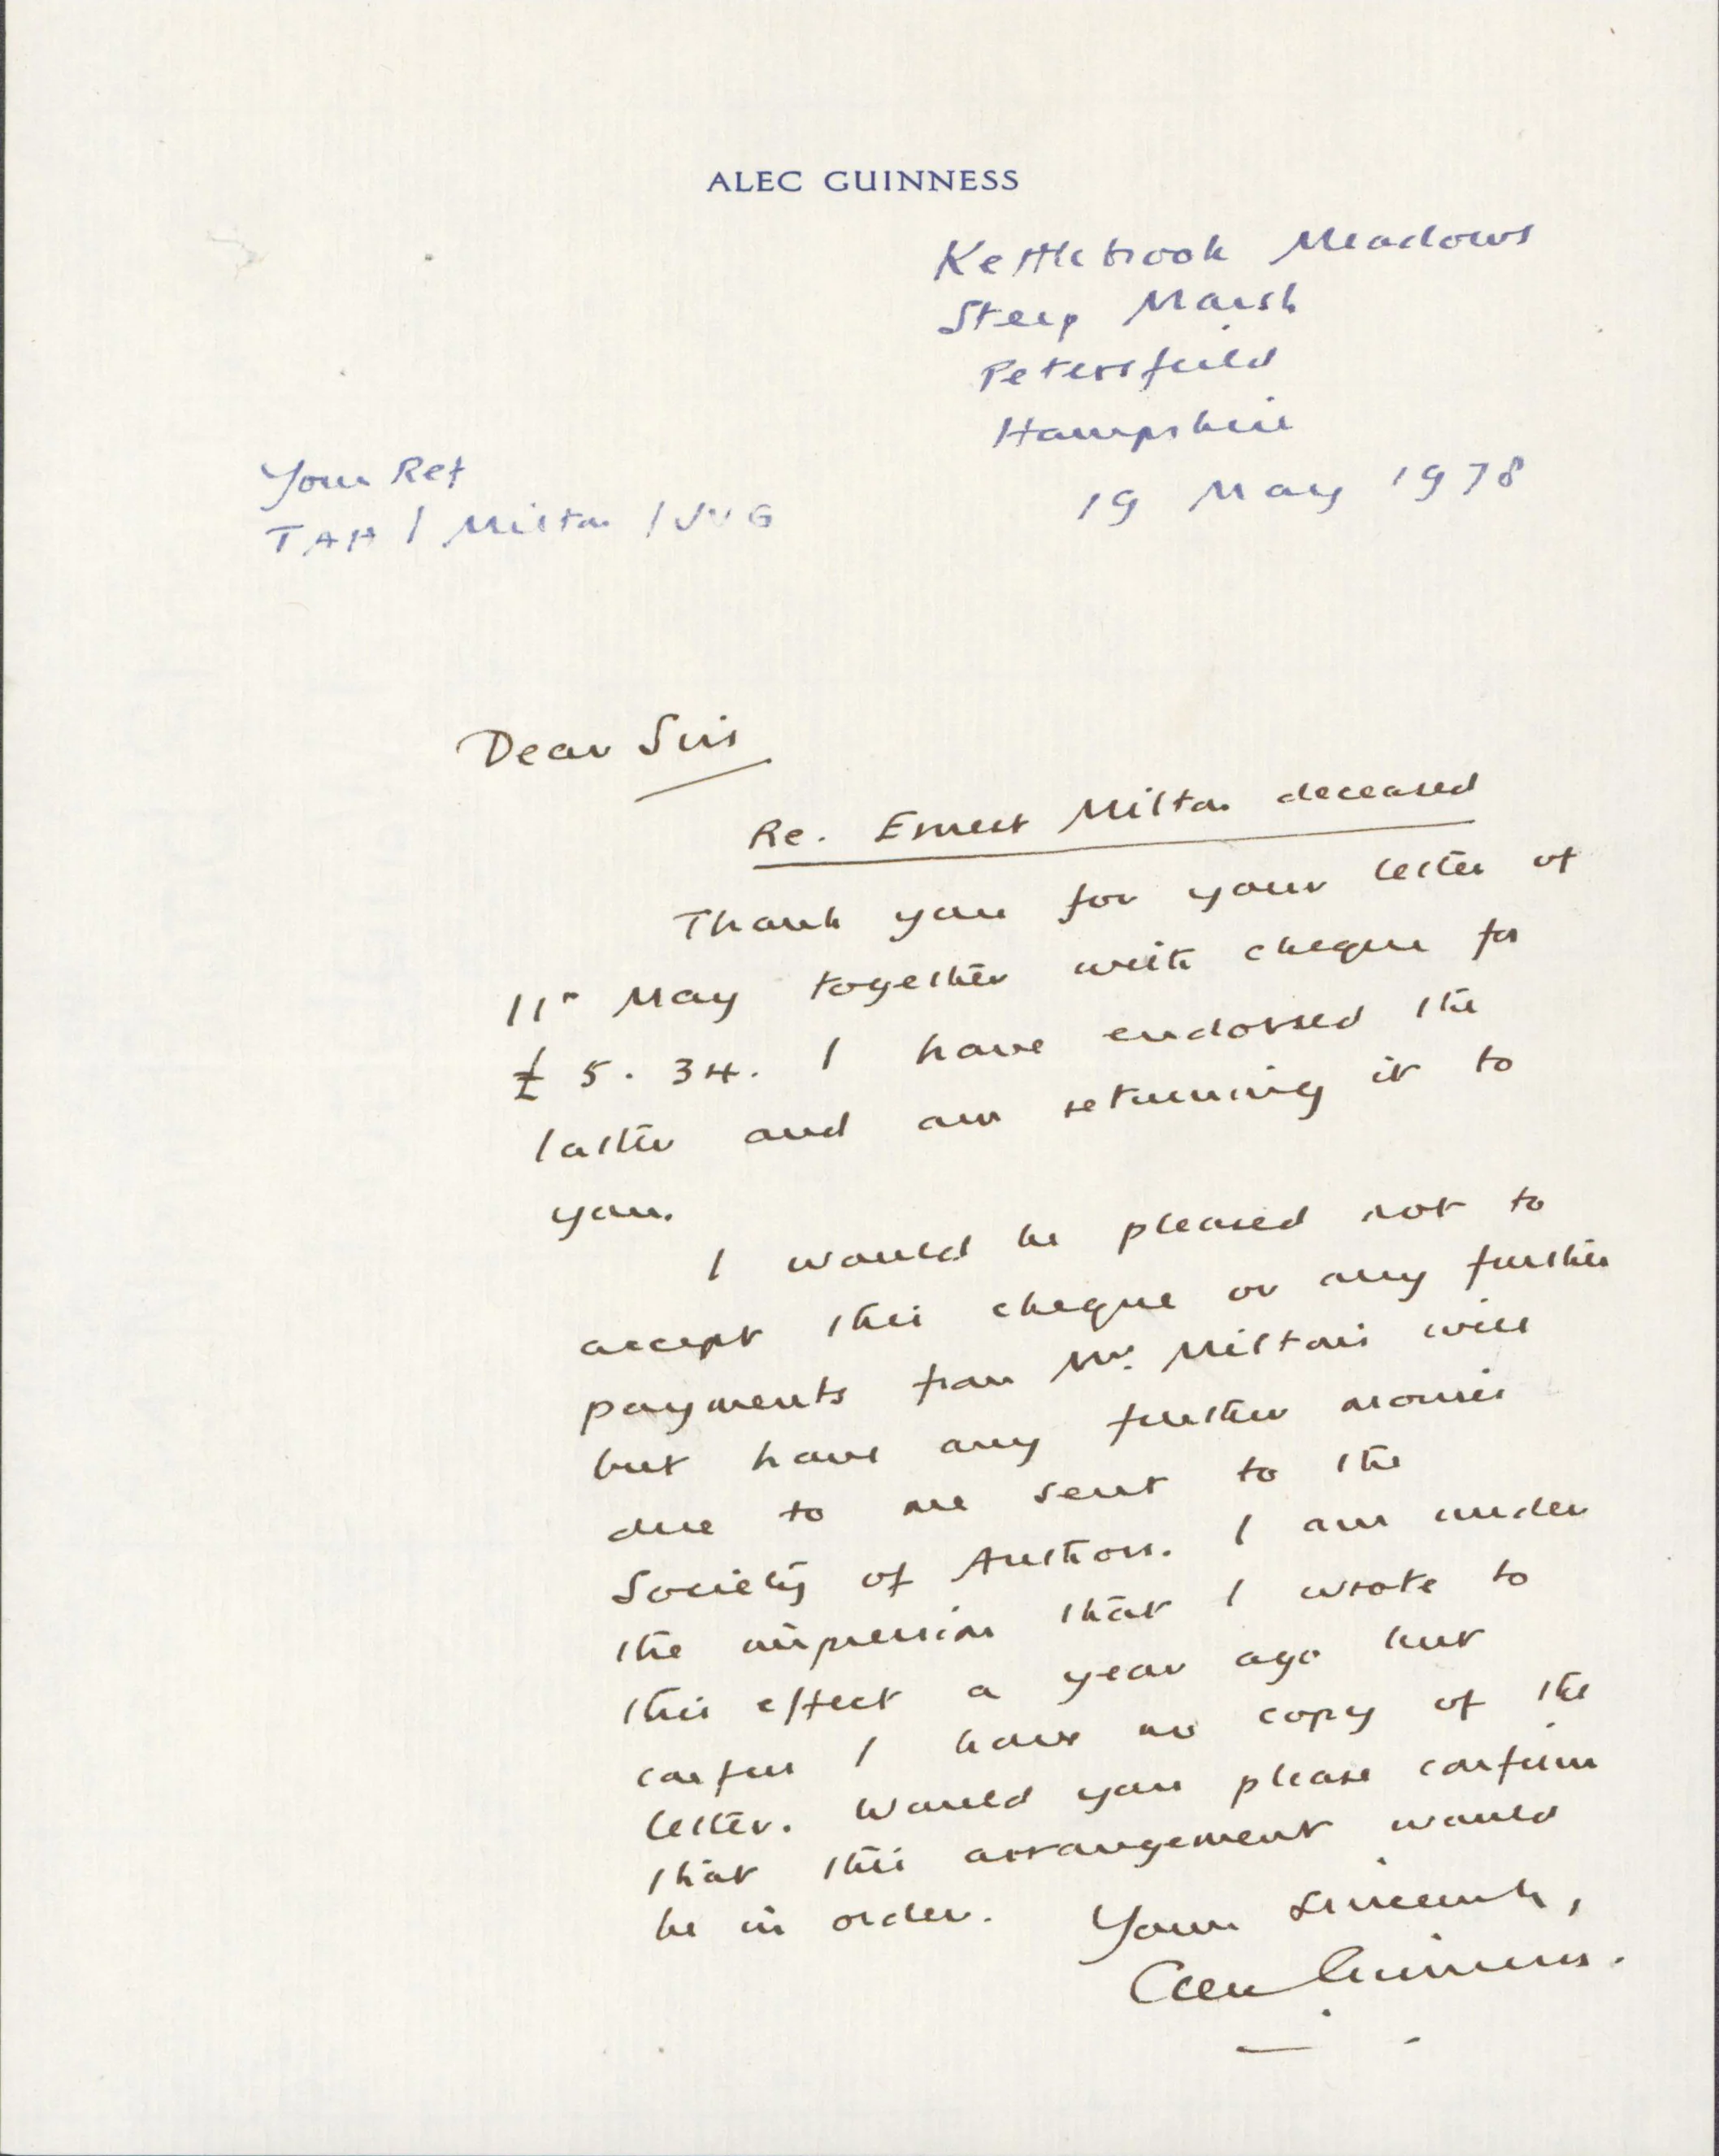 ALEC GUINNESS
Kettlebrook Meadows
Steep Marsh
Petersfield
Hampshire
19 May 1978
Your Ref
TAH / Milton / JVG
Dear Sirs
Re. Ernest Milton deceased
Thank you for your letter of
11th May together with cheque for
£ 5. 34. I have endorsed the
latter and am returning it to
you.
I would be pleased not to
accept this cheque or any further
payments from Mr. Milton's will
but have any further monies
due to me sent to the
Society of Authors. I am under
the impression that I wrote to
this effect a year ago but
confess I have no copy of the
letter. Would you please confirm
that this arrangement would
be in order. Yours sincerely,
Alec Guinness.